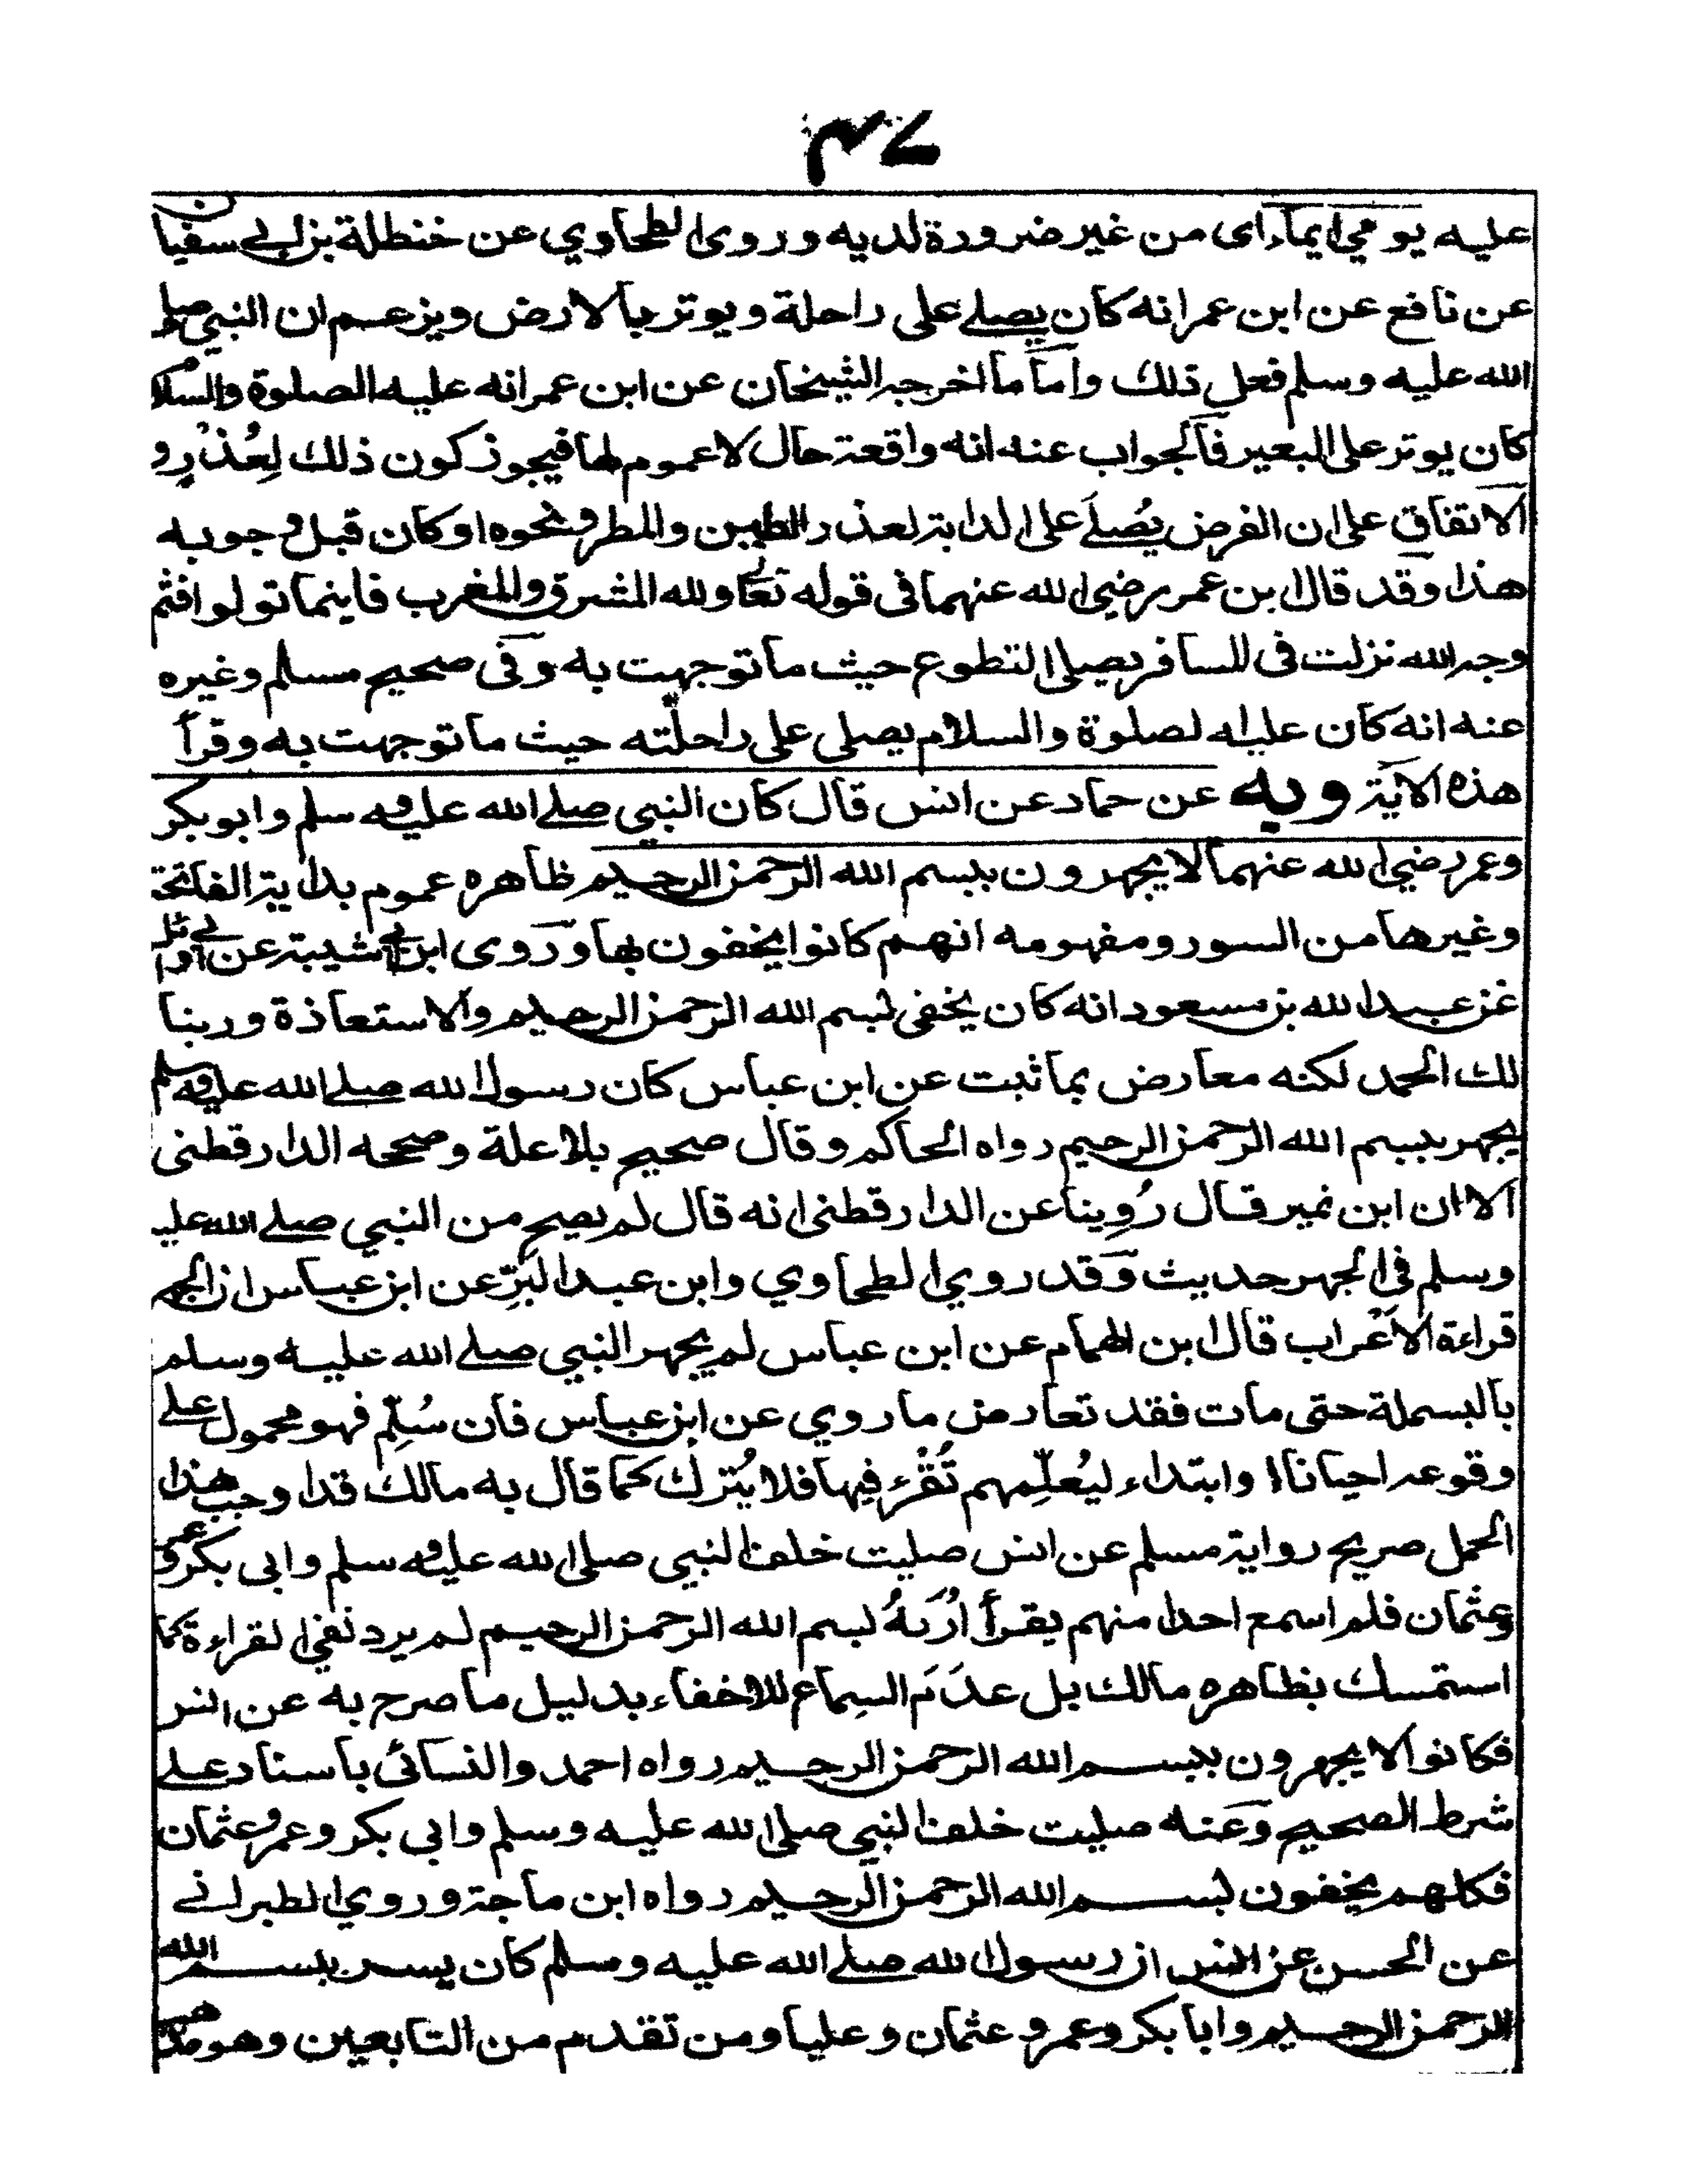 ٣٧
عليه يومي ايماء اى من غير ضرورة لديه وروى الطحاوي عن حنظلة بن ابي سفيان
عن نافع عن ابن عمر انه كان يصلے على راحلة ويوتر بالارض ويزعم ان النبي صلے
الله عليه وسلم فعل ذلك واما ما اخرجه الشيخان عن ابن عمر انه عليه الصلوة والسلام
كان يوتر على البعير فالجواب عنه انه واقعة حال لا عموم لها فيجوز كون ذلك لِعُذرٍ و
الاتفاق على ان الفرض يُصلےَ على الدابة لعذر الطين والمطر ونحوه او كان قبل وجوبه
هذا وقد قال ابن عمر رضي الله عنهما فى قوله تعالى ولله المشرق والمغرب فاينما تولوا فثم
وجه الله نزلت فى المسافر يصلى التطوع حيث ما توجهت به وفى صحيح مسلم وغيره
عنه انه كان عليه الصلوة والسلام يصلى على راحلته حيث ما توجهت به وقرأ
هذه الاية وبه عن حماد عن انس قال كان النبي صلے الله عليه وسلم وابو بكر
وعمر رضي الله عنهما لا يجهرون ببسم الله الرحمن الرحيم ظاهره عموم بداية الفاتحة
وغيرها من السور ومفهومه انهم كانوا يخفون بها وروى ابن ابي شيبة عن ابي وائل
عن عبد الله بن مسعود انه كان يخفى بسم الله الرحمن الرحيم والاستعاذة وربنا
لك الحمد لكنه معارض بما ثبت عن ابن عباس كان رسول الله صلے الله عليه وسلم
يجهر ببسم الله الرحمن الرحيم رواه الحاكم وقال صحيح بلا علة وصححه الدارقطنى
الا ان ابن نمير قال رُوِينا عن الدارقطنى انه قال لم يصح من النبي صلے الله عليه
وسلم فى الجهر حديث وقد روي الطحاوي وابن عبد البَرِّ عن ابن عباس ان الجهر
قراءة الاَعْراب قال ابن الهمام عن ابن عباس لم يجهر النبي صلے الله عليه وسلم
بالبسملة حتى مات فقد تعارض ما روي عن ابن عباس فان سُلِّم فهو محمول علے
وقوعه احيانا او ابتداء ليُعلِّمهم تُقْرء فيها فلا يُترك كما قال به مالك قد اوجب هذا
الحمل صريح رواية مسلم عن انس صليت خلف النبي صلى الله عليه وسلم وابى بكر وعمر
وعثمان فلم اسمع احدا منهم يقرأ اُرَبهُ بسم الله الرحمن الرحيم لم يرد نفي القراءة كما
استمسك بظاهره مالك بل عدَمَ السماع للاخفاء بدليل ما صرح به عن انس
فكانوا لا يجهرون ببسم الله الرحمن الرحيم رواه احمد والنسائى باسناد علے
شرط الصحيح وعنه صليت خلف النبي صلى الله عليه وسلم وابى بكر وعمر وعثمان
فكلهم يخفون بسم الله الرحمن الرحيم رواه ابن ماجة وروي الطبرانے
عن الحسن عن انس ان رسول الله صلے الله عليه وسلم كان يسر ببسم الله
الرحمن الرحيم وابا بكر وعمر وعثمان وعليا ومن تقدم من التابعين وهو مذهب